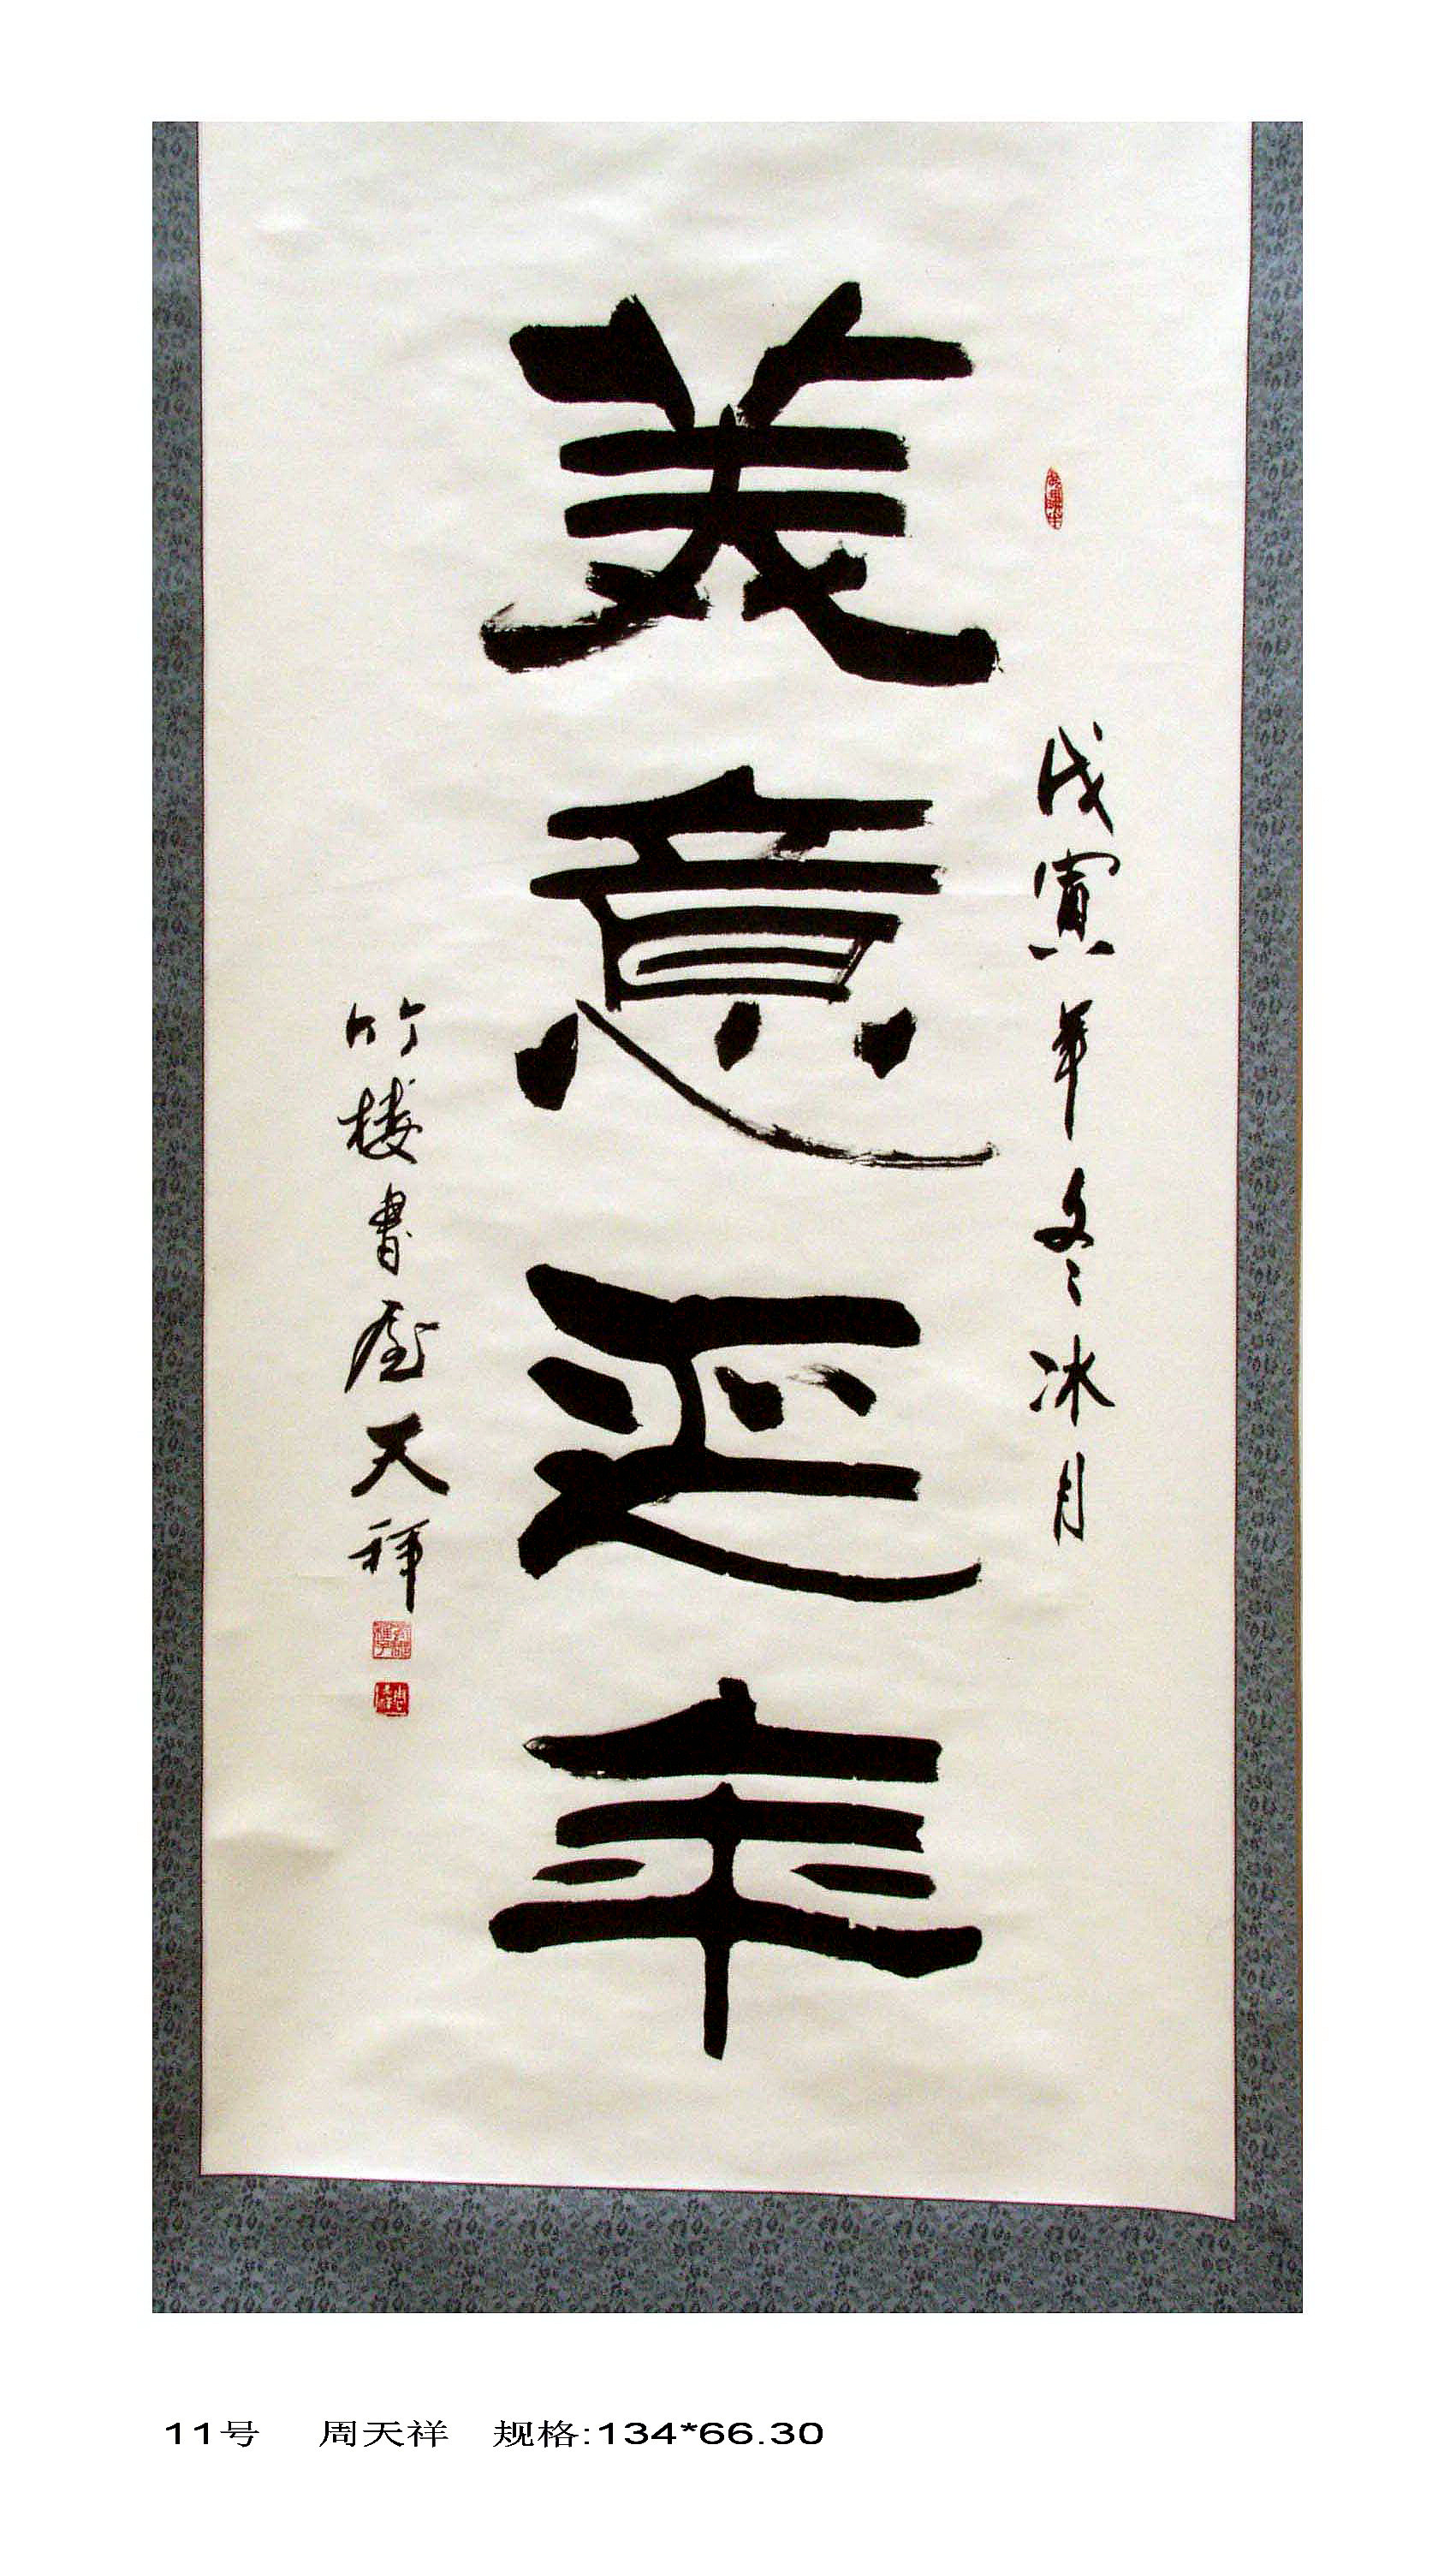 戊寅年冬冰月
美意延年
竹楼书屋天祥
11号 周天祥 规格:134*66.30